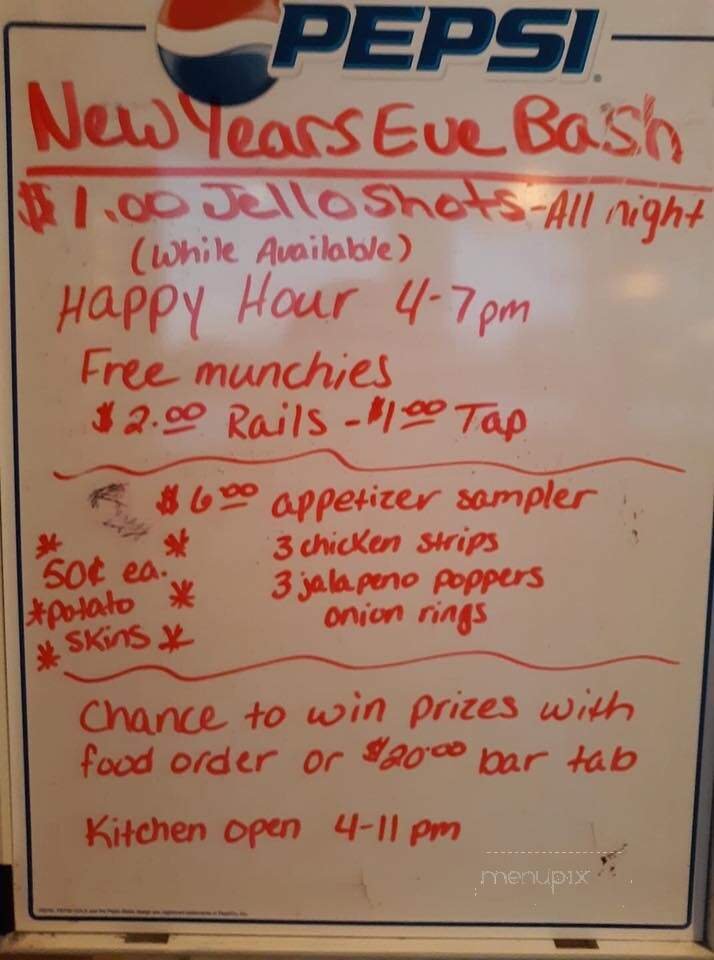 PEPSI
New Years Eve Bash
$1.00 Jello Shots - All night
(While Available)
Happy Hour 4-7pm
Free munchies
$2.00 Rails - $1.00 Tap
$6.00 appetizer sampler
3 chicken strips
3 jalapeno poppers
onion rings
50¢ ea.
*potato
skins
Chance to win prizes with
food order or $20.00 bar tab
Kitchen open 4-11 pm
menupix